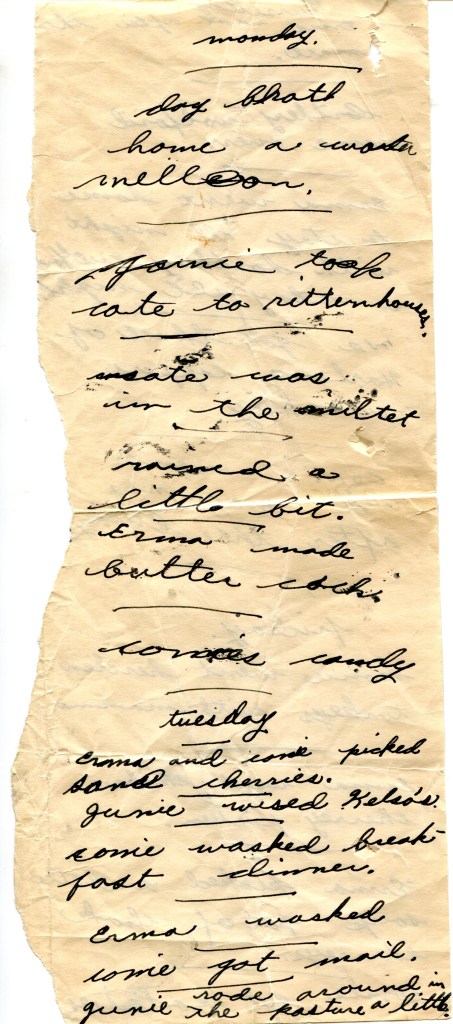 monday.
day bhoth
home a water
melloon.
Jounie took
cate to rittenhouses.
was
in the miltet
rained a
little bit.
Erma made
butter
candy
tuesday
Erma and conie picked
sand cherries.
Junie wised Kelso's.
conie wasked break
fast dinner.
Erma wasked
conie got mail.
rode around in
junie the pasture a little.